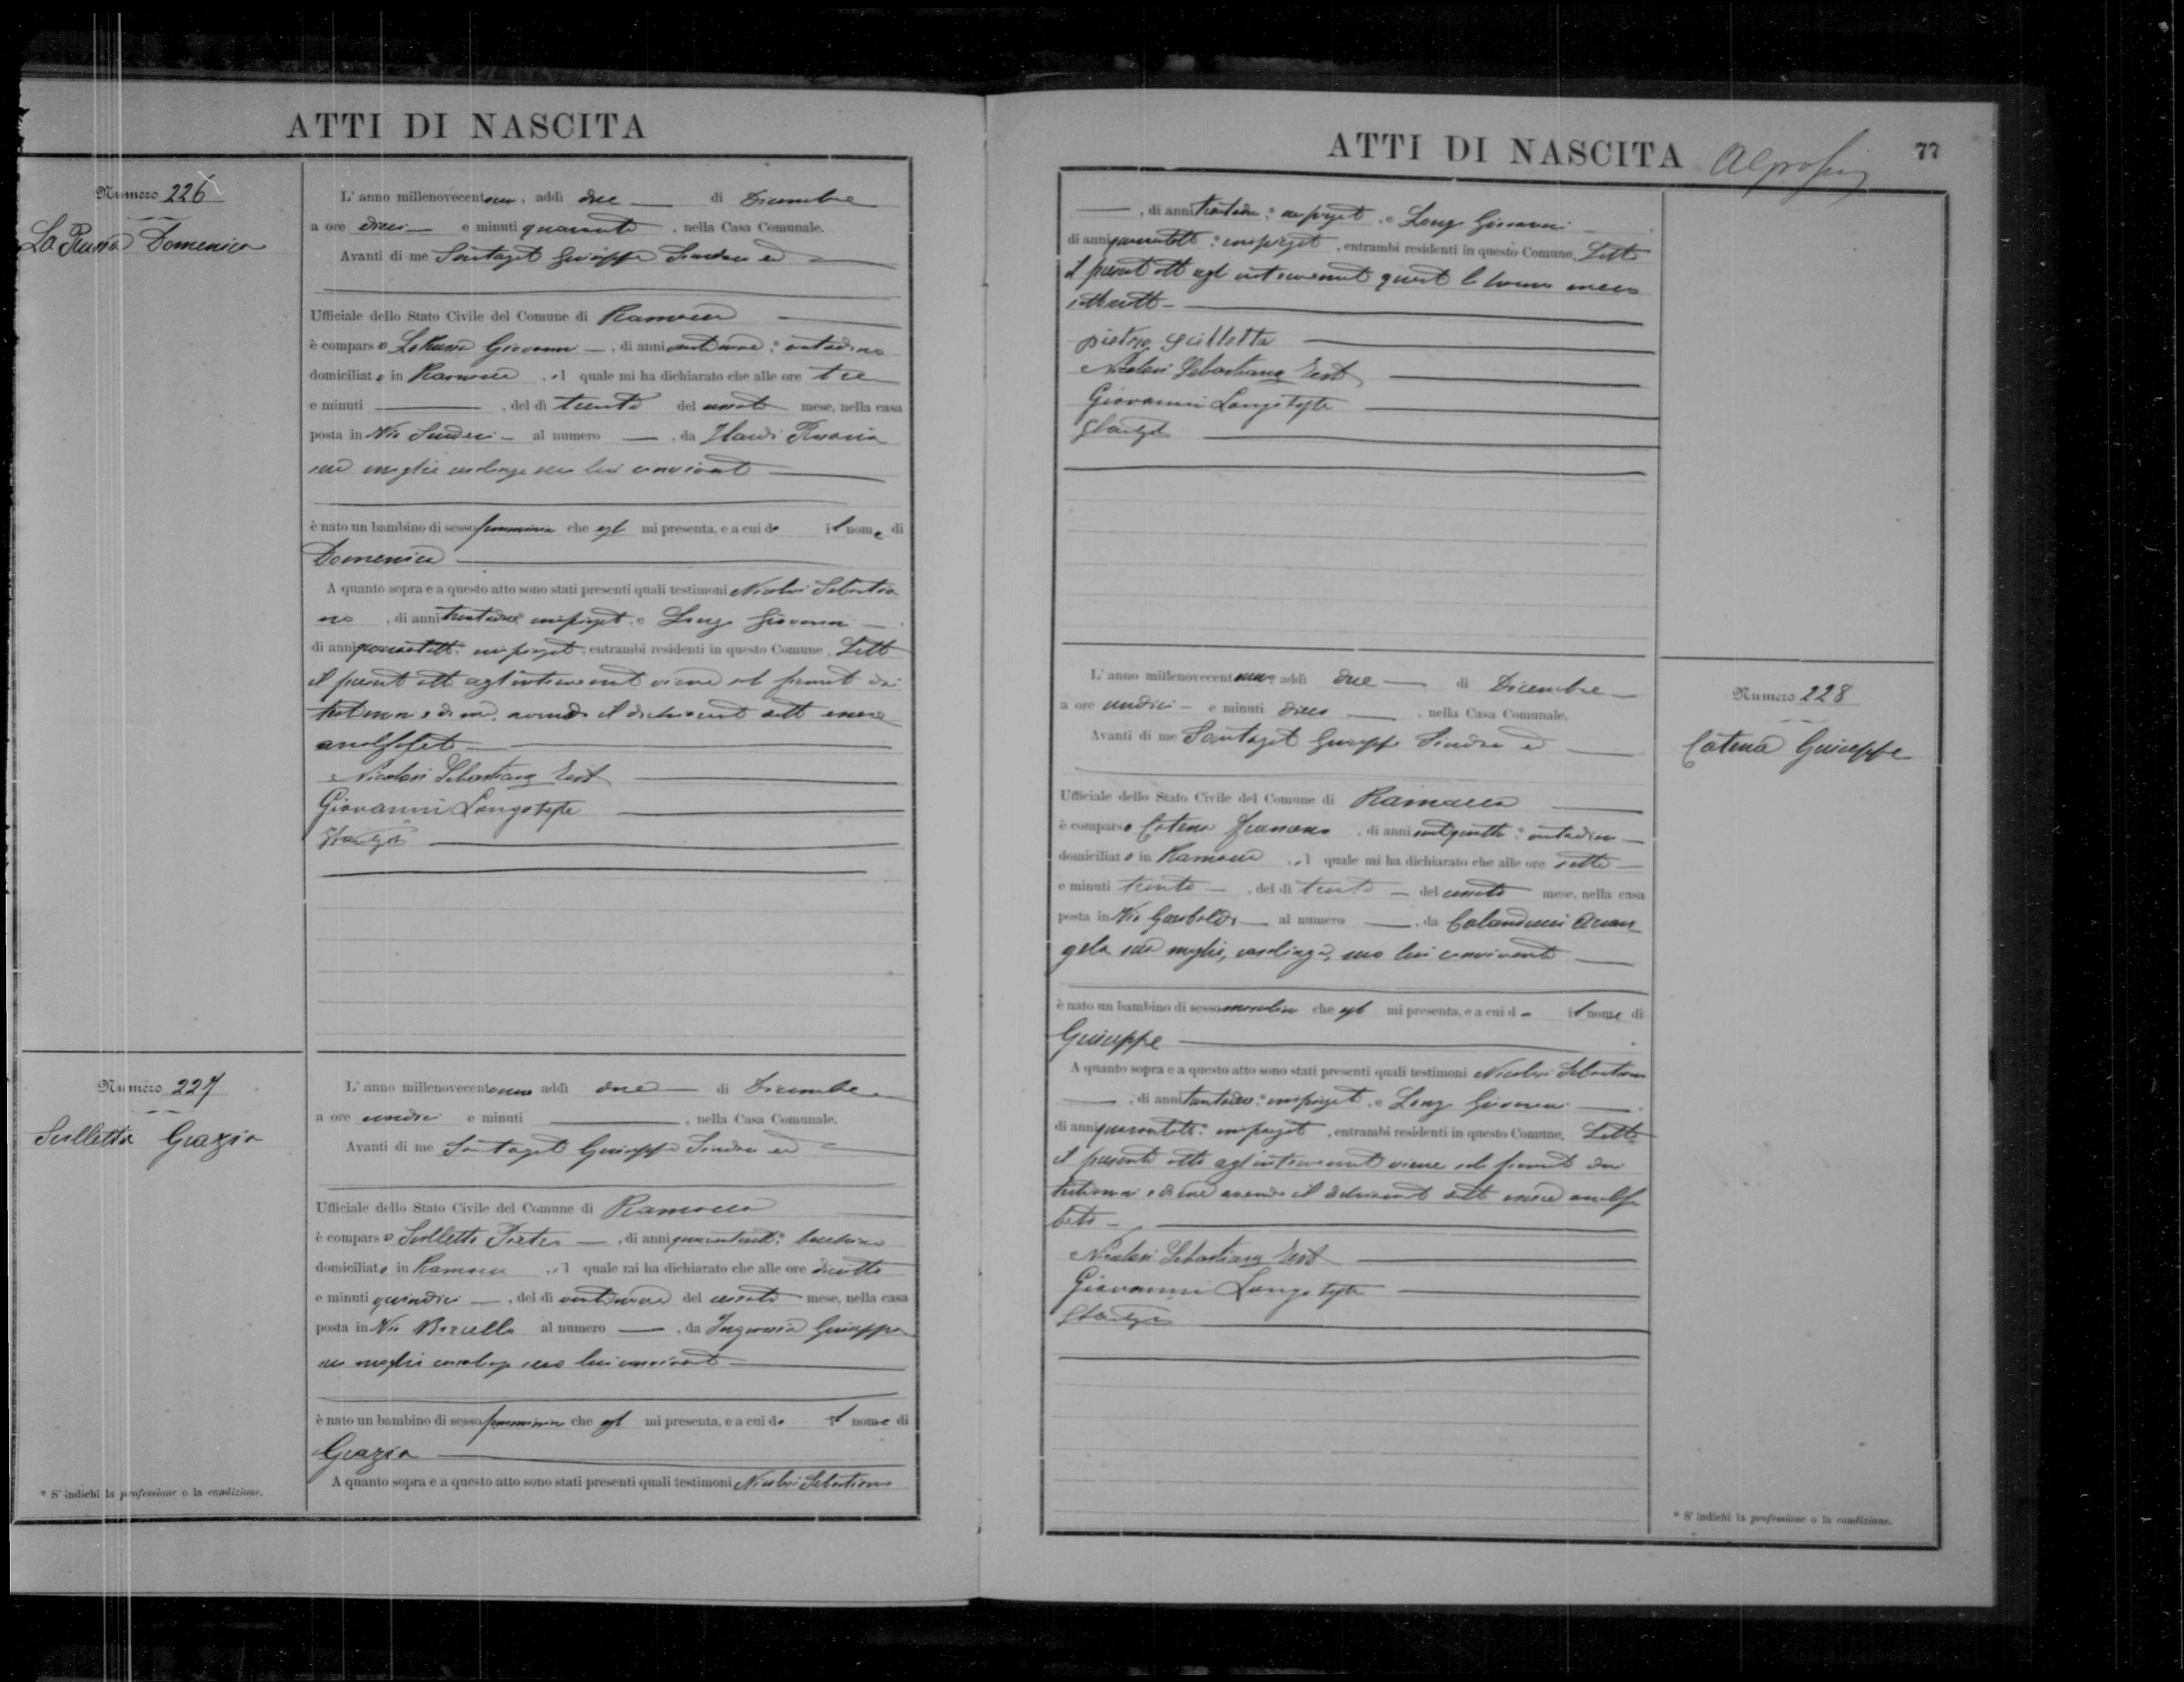 ATTI DI NASCITA
Numero 226
La Russa Domenica
L'anno millenovecentouno, addì due di Dicembre
a ore dieci e minuti quaranta, nella Casa Comunale.
Avanti di me Santagati Giuseppe Sindaco ed
Ufficiale dello Stato Civile del Comune di Ramacca
è comparso La Russa Giovanni, di anni ventinove, contadino
domiciliato in Ramacca, il quale mi ha dichiarato che alle ore tre
e minuti, del dì trenta del cessato mese, nella casa
posta in Via al numero, da Ilardi Rosaria
sua moglie casalinga seco lui convivente
è nato un bambino di sesso femminino che egli mi presenta, e a cui dà il nome di
Domenica
A quanto sopra e a questo atto sono stati presenti quali testimoni Nicolosi Sebastia
no, di anni trentadue, impiegato, e Longo Giovanni
di anni quarantotto, impiegato, entrambi residenti in questo Comune. Letto
il presente atto agl'intervenuti viene sol firmato dai
testimoni e da me, avendo il dichiarante detto essere
analfabeta
Nicolosi Sebastiano test
Giovanni Longo teste
GSantagati
Numero 227
Scilletta Grazia
L'anno millenovecentouno addì due di Dicembre
a ore undici e minuti, nella Casa Comunale.
Avanti di me Santagati Giuseppe Sindaco ed
Ufficiale dello Stato Civile del Comune di Ramacca
è comparso Scilletta Pietro, di anni
domiciliato in Ramacca, il quale mi ha dichiarato che alle ore diciotto
e minuti quindici, del dì ventinove del cessato mese, nella casa
posta in Via al numero, da Ingrassia Giuseppa
sua moglie casalinga seco lui convivente
è nato un bambino di sesso femminino che egli mi presenta, e a cui dà il nome di
Grazia
A quanto sopra e a questo atto sono stati presenti quali testimoni Nicolosi Sebastiano
* S'indichi la professione o la condizione.
ATTI DI NASCITA
77
, di anni trentadue, impiegato, e Longo Giovanni
di anni quarantotto, impiegato, entrambi residenti in questo Comune. Letto
il presente atto agl'intervenuti questi lo hanno meco
sottoscritto
pietro scilletta
Nicolosi Sebastiano test
Giovanni Longo teste
GSantagati
L'anno millenovecentouno addì due di Dicembre
a ore undici e minuti dieci, nella Casa Comunale.
Avanti di me Santagati Giuseppe Sindaco ed
Ufficiale dello Stato Civile del Comune di Ramacca
è comparso Catena, di anni ventiquattro, contadino
domiciliato in Ramacca, il quale mi ha dichiarato che alle ore sette
e minuti trenta, del dì trenta del cessato mese, nella casa
posta in Via Garibaldi al numero, da Calanducci Arcan
gela sua moglie, casalinga, seco lui convivente
è nato un bambino di sesso mascolino che egli mi presenta, e a cui dà il nome di
Giuseppe
A quanto sopra e a questo atto sono stati presenti quali testimoni Nicolosi Sebastiano
, di anni trentadue, impiegato, e Longo Giovanni
di anni quarantotto, impiegato, entrambi residenti in questo Comune. Letto
il presente atto agl'intervenuti viene sol firmato dai
testimoni e da me avendo il dichiarante detto essere analfa
beta
Nicolosi Sebastiano test
Giovanni Longo teste
GSantagati
Numero 228
Catena Giuseppe
* S'indichi la professione o la condizione.